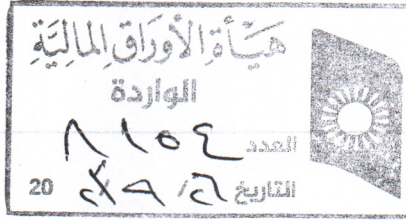 هَيْأَةِ الأَوْرَاقِ المَالِيَّةِ
الواردة
العدد ٨١٥٤
التاريخ / 20